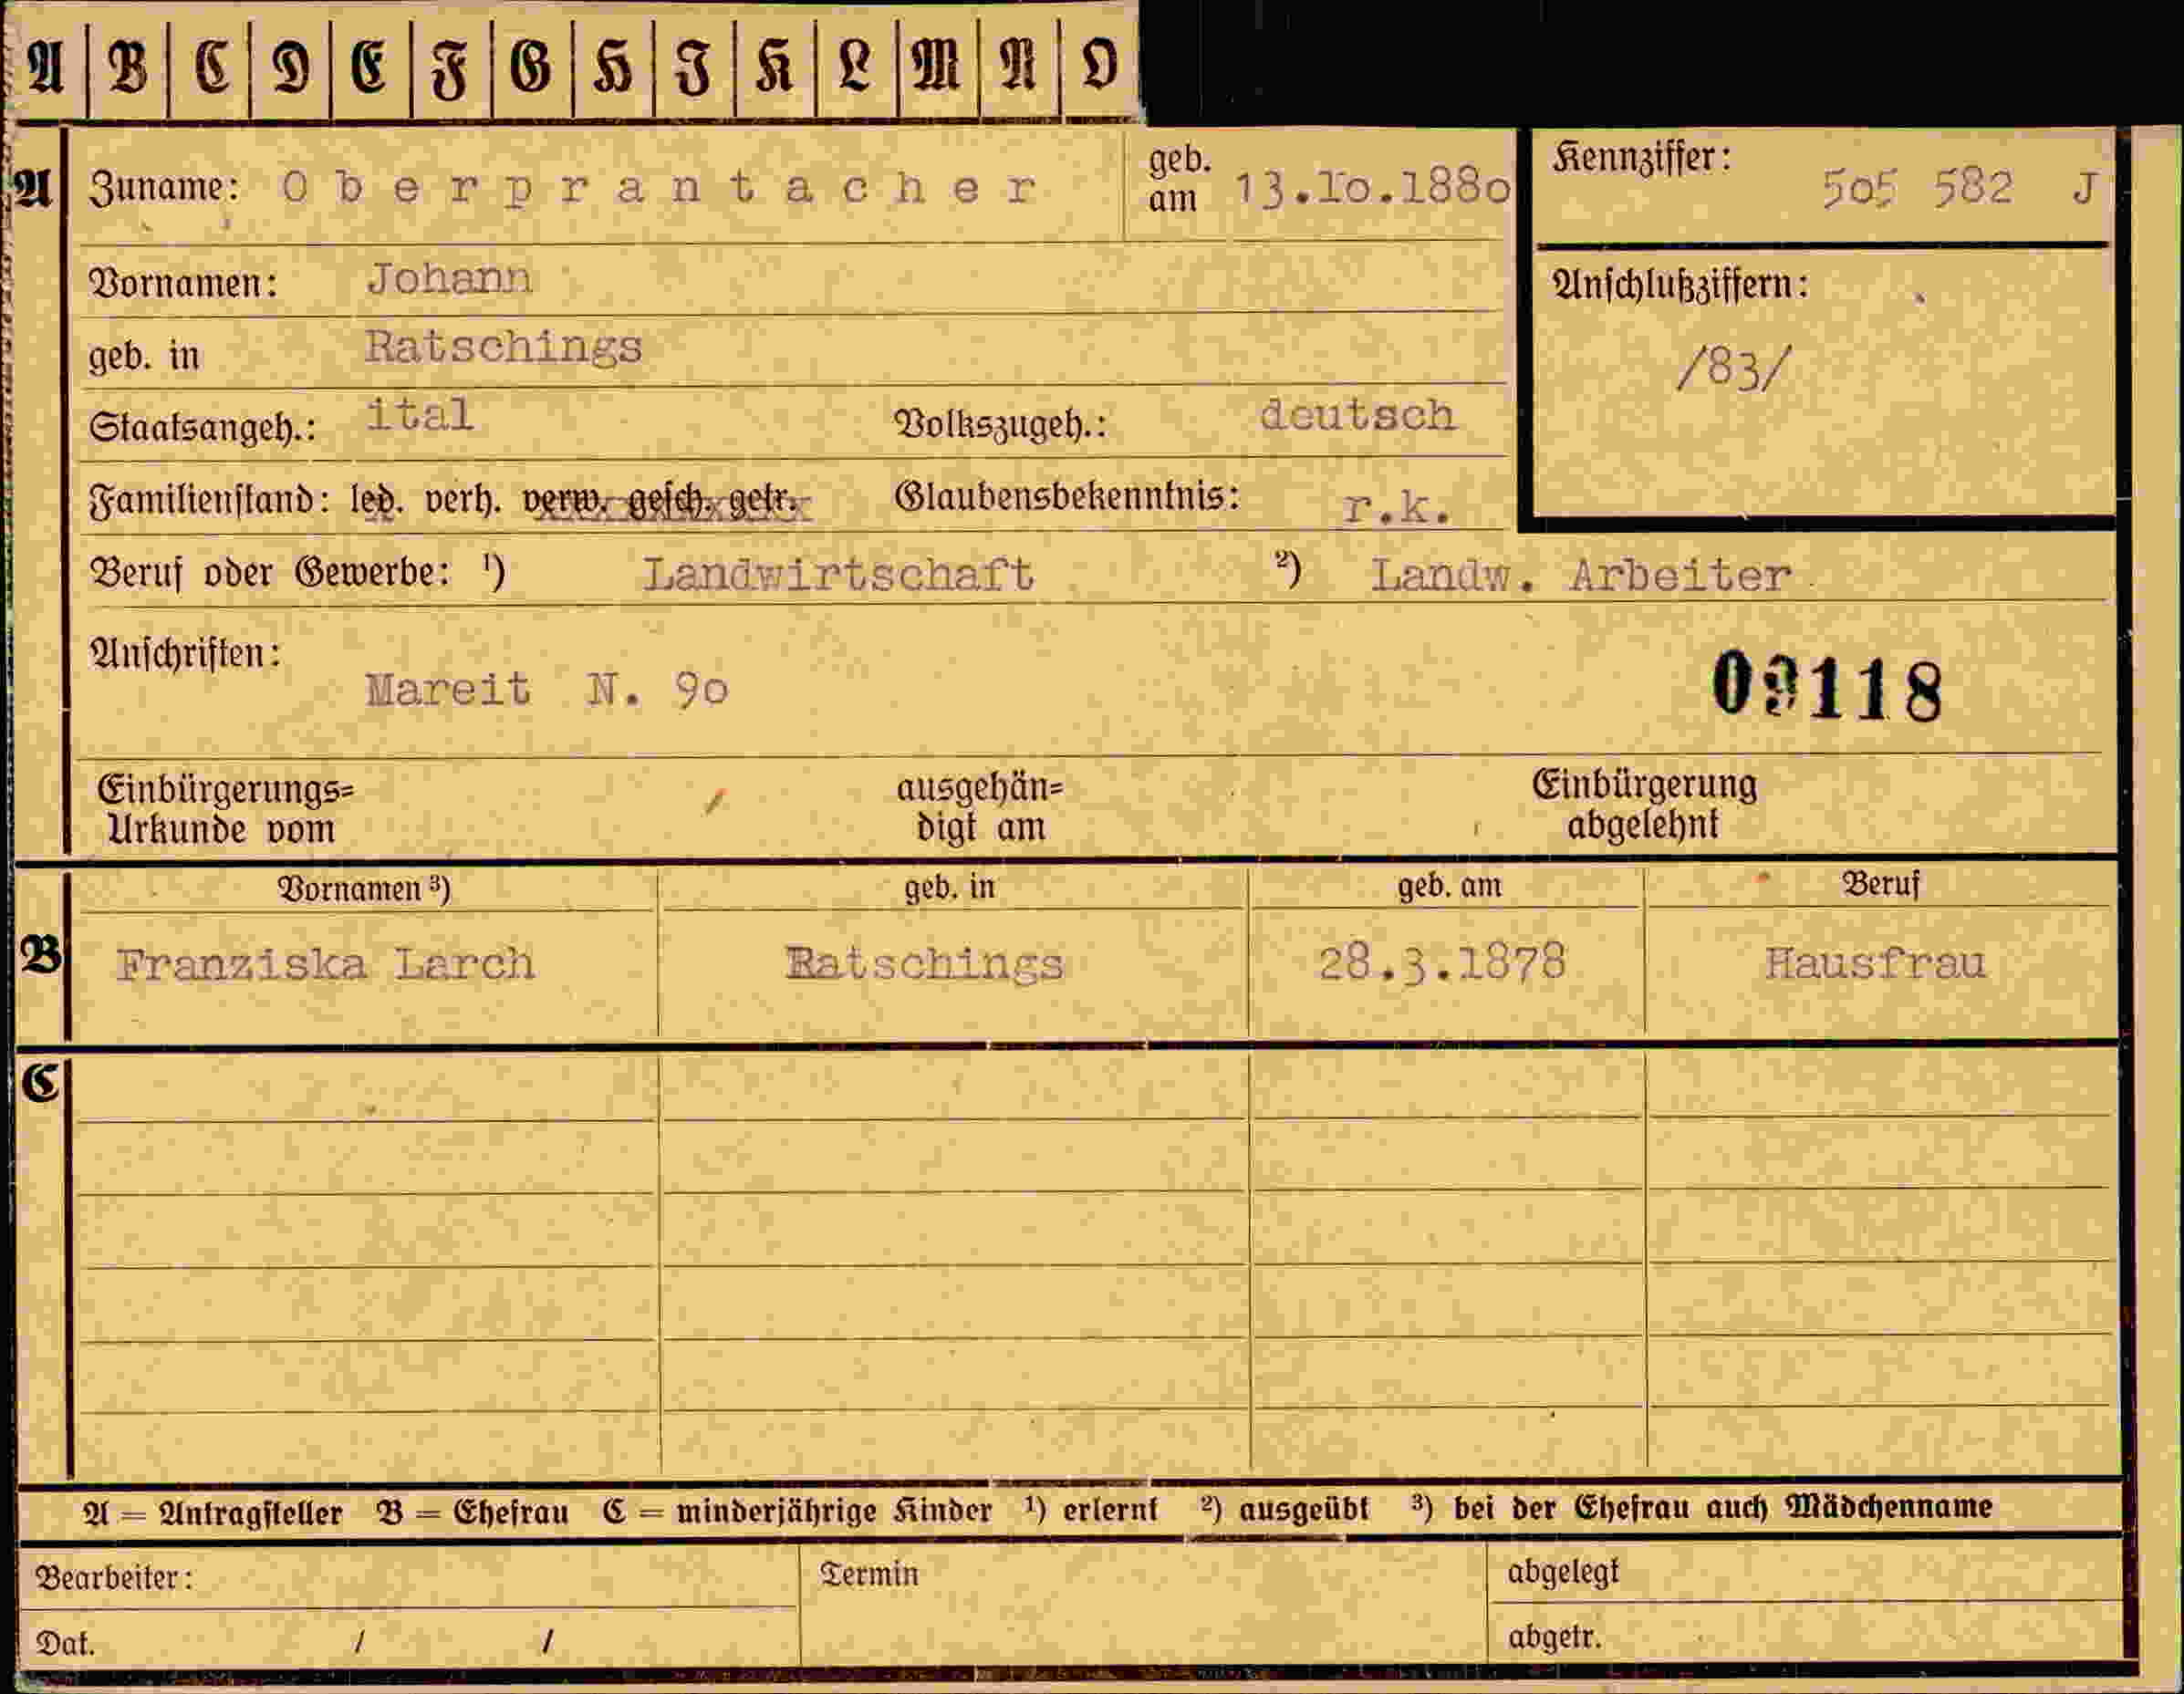 A B C D E F G H I K L M N O
A Zuname: Oberprantacher geb. am 13.10.1880 Kennziffer: 505 582 J
Vornamen: Johann Anschlußziffern:
geb. in Ratschings /83/
Staatsangeh.: ital Volkszugeh.: deutsch
Familienstand: led. verh. verw. gesch. getr. Glaubensbekenntnis: r.k.
Beruf oder Gewerbe: ¹) Landwirtschaft ²) Landw. Arbeiter
Anschriften:
Mareit N. 90 09118
Einbürgerungs= ausgehän= Einbürgerung
Urkunde vom digt am abgelehnt
Vornamen ³) geb. in geb. am Beruf
B Franziska Larch Ratschings 28.3.1878 Hausfrau
C
A = Antragsteller B = Ehefrau C = minderjährige Kinder ¹) erlernt ²) ausgeübt ³) bei der Ehefrau auch Mädchenname
Bearbeiter: Termin abgelegt
Dat. / / abgetr.